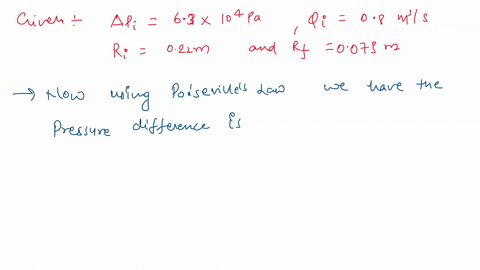 Given :- ΔPi = 6.3 x 10⁴ Pa, Qi = 0.8 m³/s
Ri = 0.22m and Rf = 0.075 m
→ Now using Poiseville's Law we have the
Pressure difference is